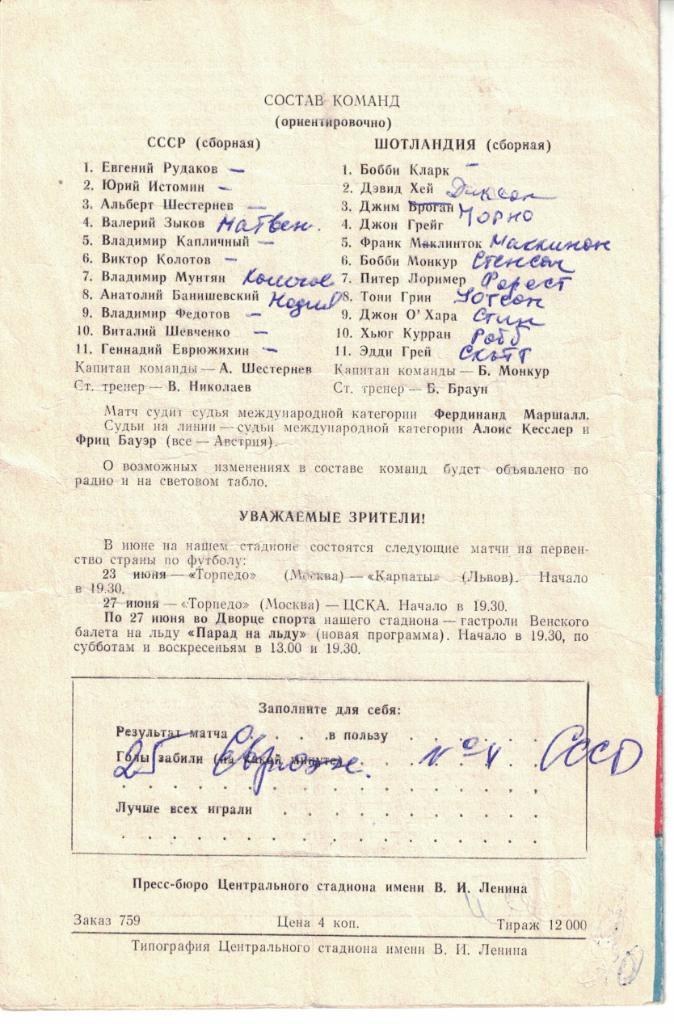 СОСТАВ КОМАНД
(ориентировочно)
СССР (сборная)
1. Евгений Рудаков —
2. Юрий Истомин —
3. Альберт Шестернев —
4. Валерий Зыков Матвен.
5. Владимир Капличный —
6. Виктор Колотов —
7. Владимир Мунтян
8. Анатолий Банишевский
9. Владимир Федотов —
10. Виталий Шевченко —
11. Геннадий Еврюжихин —
Капитан команды — А. Шестернев
Ст. тренер — В. Николаев
ШОТЛАНДИЯ (сборная)
1. Бобби Кларк —
2. Дэвид Хей Диксон
3. Джим Броган Чорно
4. Джон Грейг
5. Франк Маклинток Маккинон
6. Бобби Монкур Стенсон
7. Питер Лоример Форест
8. Тони Грин Уотсон
9. Джон О'Хара Стин
10. Хьюг Курран Робб
11. Эдди Грей Скотт
Капитан команды — Б. Монкур
Ст. тренер — Б. Браун
Матч судит судья международной категории Фердинанд Маршалл.
Судьи на линии — судьи международной категории Алоис Кесслер и
Фриц Бауэр (все — Австрия).
О возможных изменениях в составе команд будет объявлено по
радио и на световом табло.
УВАЖАЕМЫЕ ЗРИТЕЛИ!
В июне на нашем стадионе состоятся следующие матчи на первен-
ство страны по футболу:
23 июня — «Торпедо» (Москва) — «Карпаты» (Львов). Начало
в 19.30.
27 июня — «Торпедо» (Москва) — ЦСКА. Начало в 19.30.
По 27 июня во Дворце спорта нашего стадиона — гастроли Венского
балета на льду «Парад на льду» (новая программа). Начало в 19.30, по
субботам и воскресеньям в 13.00 и 19.30.
Заполните для себя:
Результат матча . . . . в пользу . . . . . .
Голы забили (на какой минуте)
25 Еврюж. СССР
Лучше всех играли . . . . . . . . . . .
Пресс-бюро Центрального стадиона имени В. И. Ленина
Заказ 759 Цена 4 коп. Тираж 12 000
Типография Центрального стадиона имени В. И. Ленина